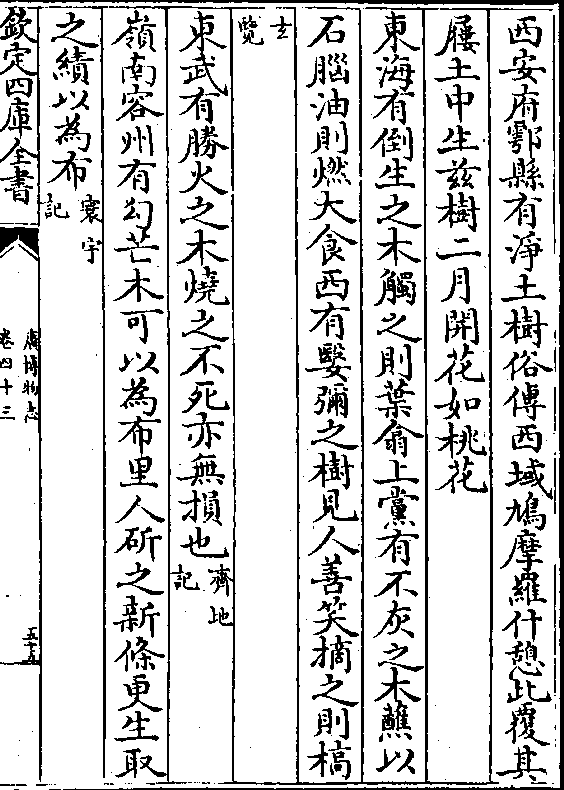 西安府鄠縣有淨土樹俗傳西域鳩摩羅什憩此覆其
屨土中生兹樹二月開花如桃花
東海有倒生之木觸之則葉翕上黨有不灰之木蘸以
石腦油則燃大食西有婜彌之樹見人善笑摘之則槁
玄
覽
東武有勝火之木燒之不死亦無損也齊地
記
嶺南容州有勾芒木可以為布里人斫之新條更生取
之績以為布寰宇
記
欽定四庫全書
廣博物志
卷四十三
五十五